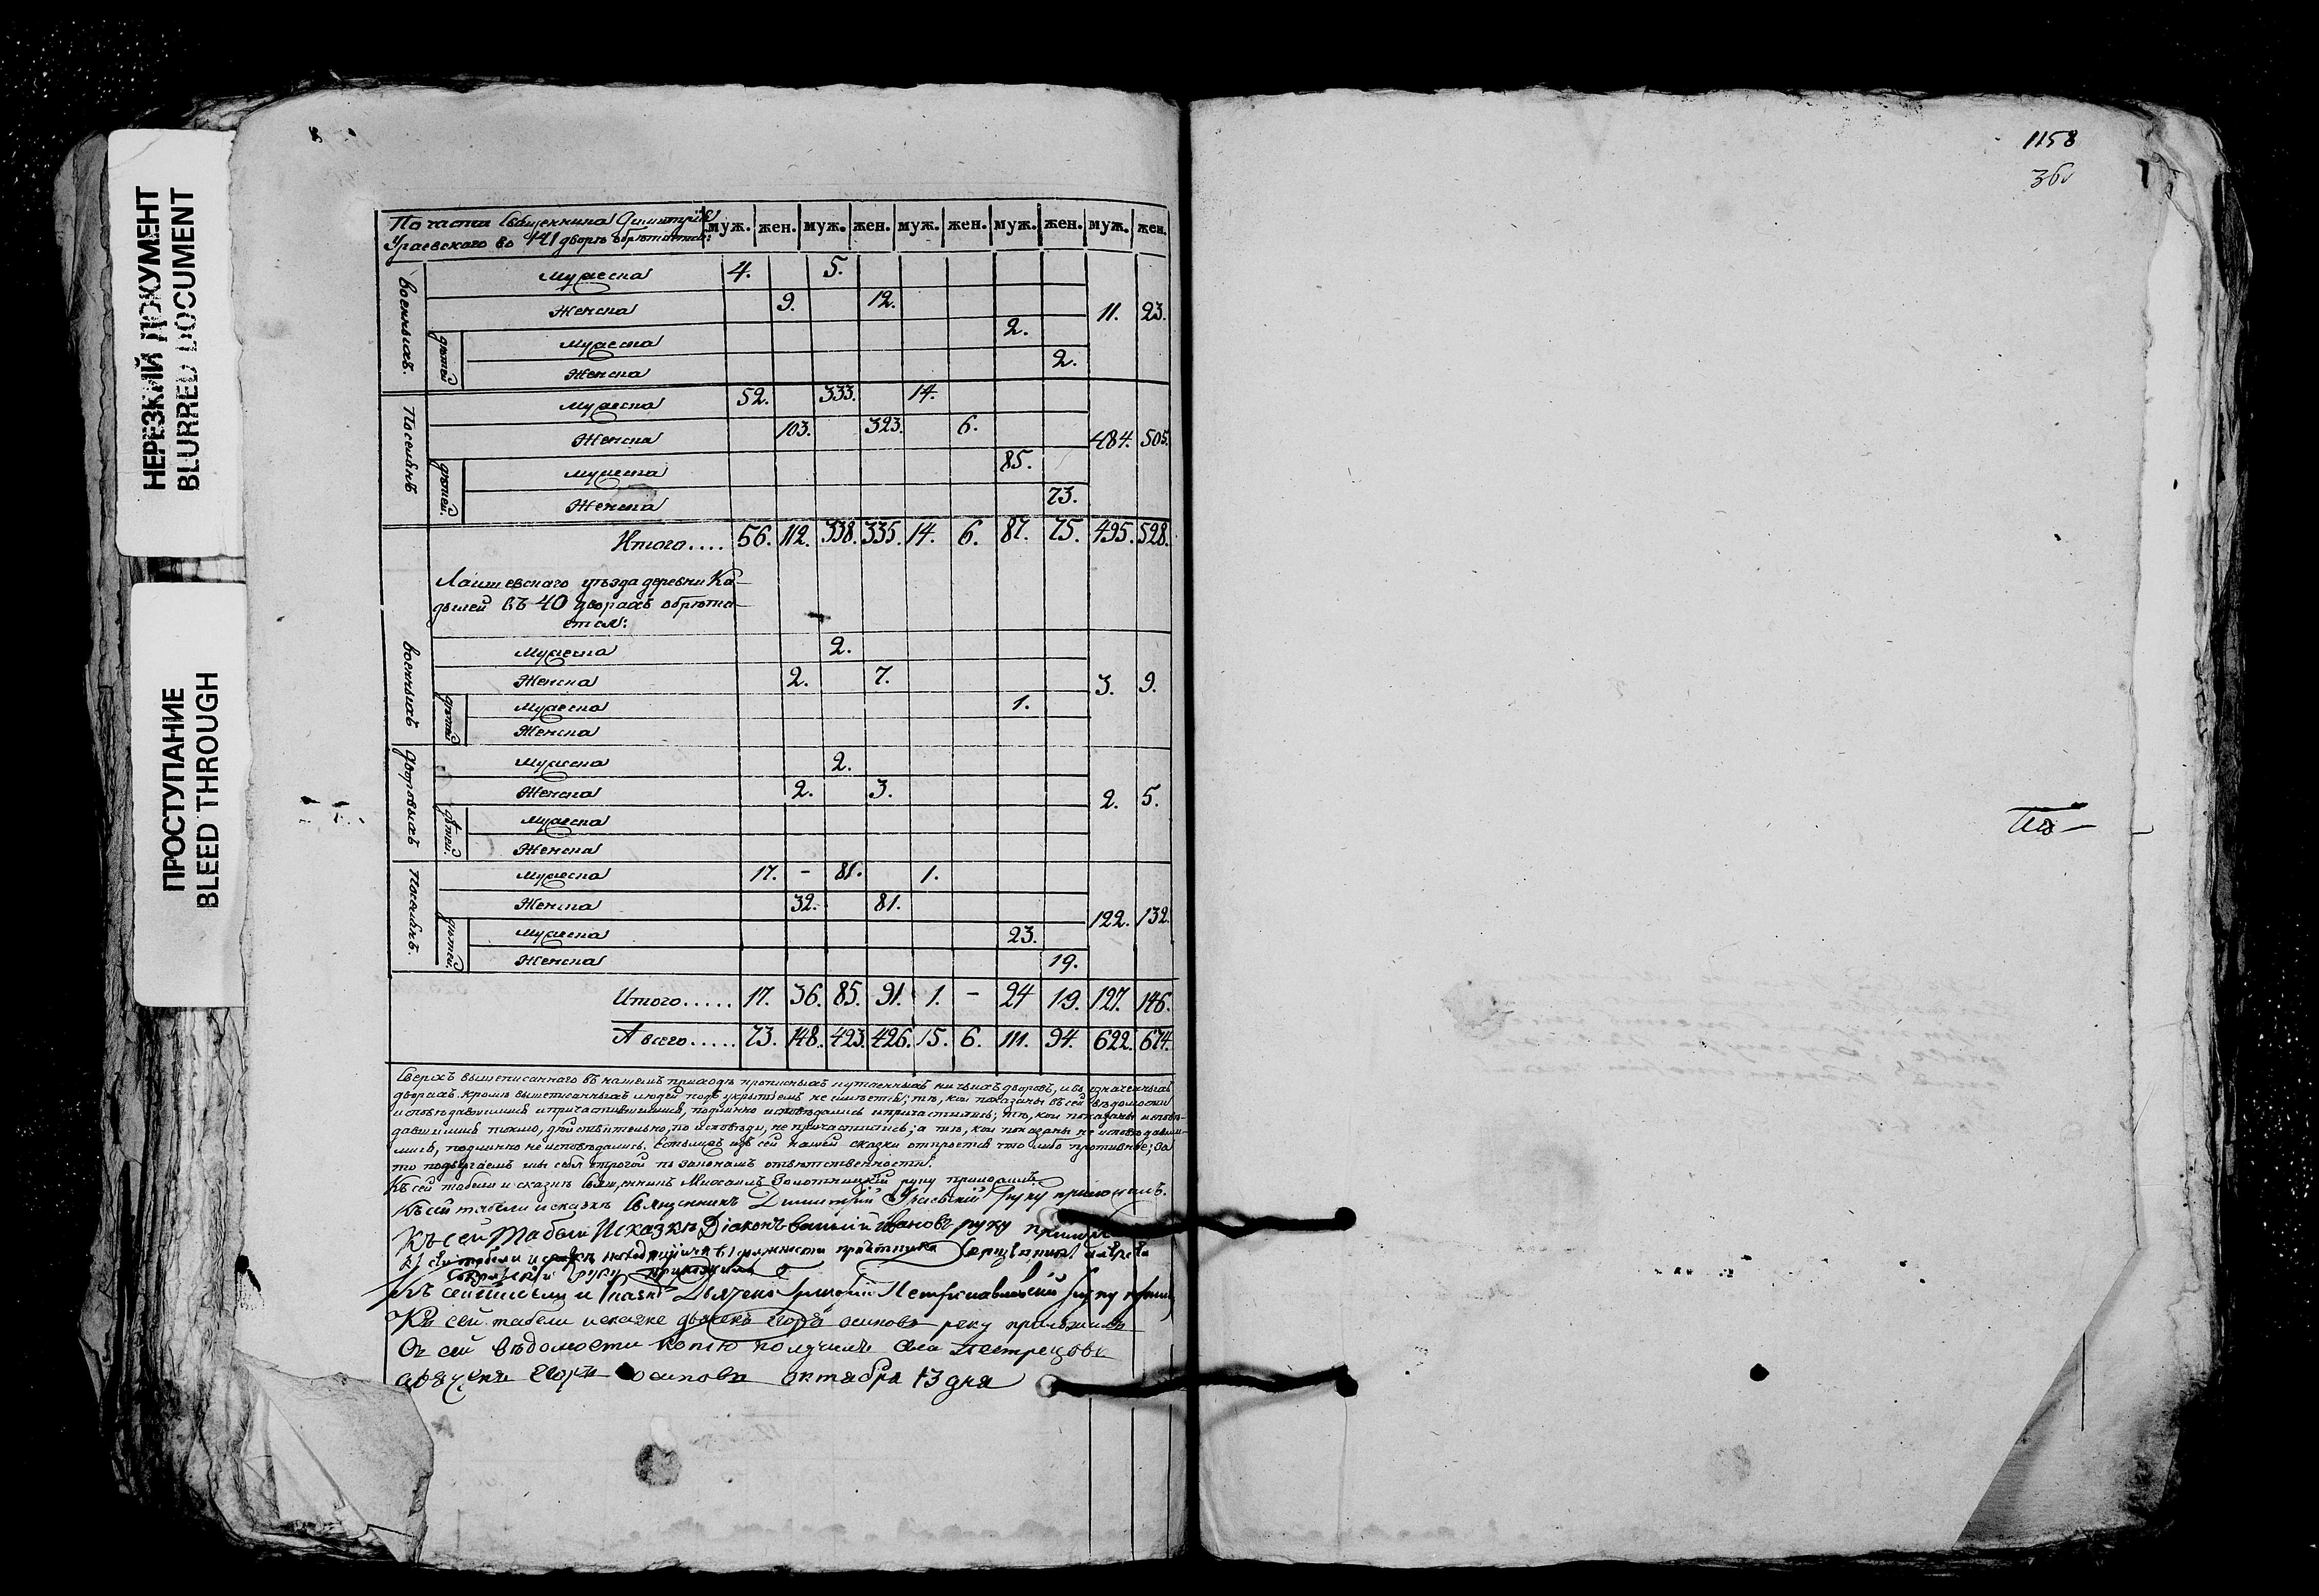 1158
36
НЕРЕЗКИЙ ДОКУМЕНТ
BLURRED DOCUMENT
ПРОСТУПАНИЕ
BLEED THROUGH
По части Священника Димитрія муж. жен. муж. жен. муж. жен. муж. жен. муж. жен.
во 121 дворѣ обрѣтается:
военныхъ.
Мужеска 4. 5.
Женска 9. 12. 11. 23.
дѣтей
Мужеска 2.
Женска 2.
Поселянъ
Мужеска 52. 333. 14.
Женска 103. 323. 6. 484. 505.
дѣтей.
Мужеска 85.
Женска 73.
Итого.... 56. 112. 338. 335. 14. 6. 87. 75. 495. 528.
Лаишевскаго уѣзда деревни Ка-
дылей въ 40 дворахъ обрѣта-
ется:
военныхъ
Мужеска 2.
Женска 2. 7. 3. 9.
дѣтей
Мужеска 1.
Женска
дворовыхъ
Мужеска 2.
Женска 2. 3. 2. 5.
дѣтей.
Мужеска
Женска
Поселянъ.
Мужеска 17. - 81. 1.
Женска 32. 81. 122. 132.
дѣтей.
Мужеска 23.
Женска 19.
Итого..... 17. 36. 85. 91. 1. - 24 19. 127. 146.
А всего..... 73. 148. 423. 426. 15. 6. 111. 94. 622. 674.
Сверхъ вышеписаннаго въ нашемъ приходѣ прописныхъ и утаенныхъ ничьихъ дворовъ, и во означенныхъ
дворахъ кромѣ вышеписанныхъ людей подъ укрытіемъ не имѣется; тѣ, кои показаны въ сей вѣдомости
исповѣдавшимися и причастившимися, подлинно исповѣдались и причастились; тѣ, кои показаны исповѣ-
давшимись токмо, дѣйствительно, по исповѣди, не причастились; а тѣ, кои показаны не исповѣдавши-
мись, подлинно не исповѣдались. Естьлижъ изъ сей нашей сказки откроется что либо противное; за
то подвергаемъ мы себя строгой по законамъ отвѣтственности.
Къ сей табели и сказкѣ Священникъ Михаилъ руку приложилъ
Къ сей табели и сказкѣ Священникъ Димитрій руку приложилъ.
Къ сей Табели И сказкѣ Діаконъ Василій Ивановъ руку
Къ сей табели и
руку приложилъ
Къ сей табели и сказкѣ Дьячекъ Григорій Петропавловскій руку
Къ сей табели и сказке дьячекъ Егоръ осиповъ руку приложилъ
Съ сей вѣдомости копію получилъ Села Пестрецовъ
дьячекъ Егоръ осиповъ октября 13 дня